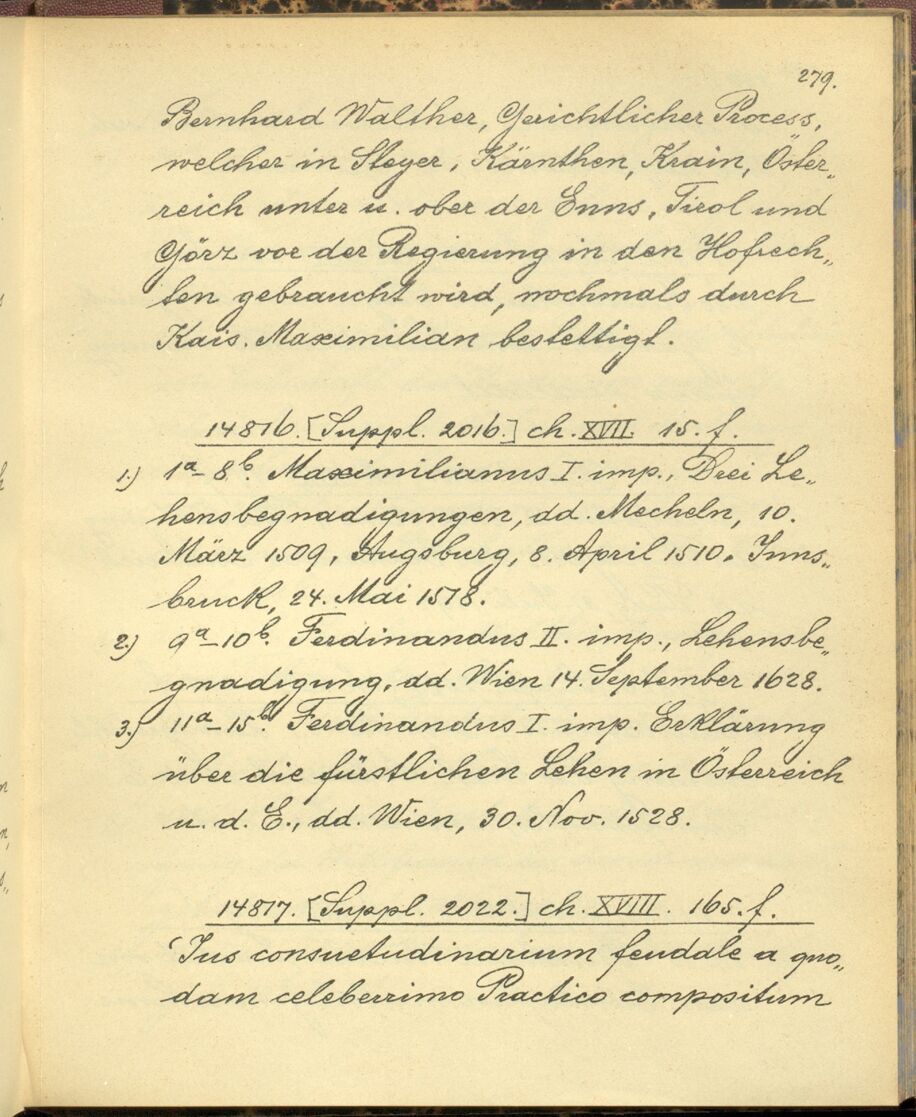 279.
Bernhard Walther, Gerichtlicher Process,
welcher in Steyer, Kärnthen, Krain, Öster„
reich unter u. ober der Enns, Tirol und
Görz vor der Regierung in den Hofrech„
ten gebraucht wird, nochmals durch
Kais. Maximilian bestettigt.
14816. [Suppl. 2016.] ch. XVII. 15. f.
1.) 1a–8b. Maximilianus I. imp., Drei Le„
hensbegnadigungen, dd. Mecheln, 10.
März 1509, Augsburg, 8. April 1510, Inns„
bruck, 24. Mai 1518.
2.) 9a–10b. Ferdinandus II. imp., Lehensbe„
gnadigung, dd. Wien 14. September 1628.
3.) 11a–15b. Ferdinandus I. imp. Erklärung
über die fürstlichen Lehen in Österreich
u. d. E., dd. Wien, 30. Nov. 1528.
14817. [Suppl. 2022.] ch. XVIII. 165. f.
'Ius consuetudinarium feudale a quo„
dam celeberrimo Practico compositum